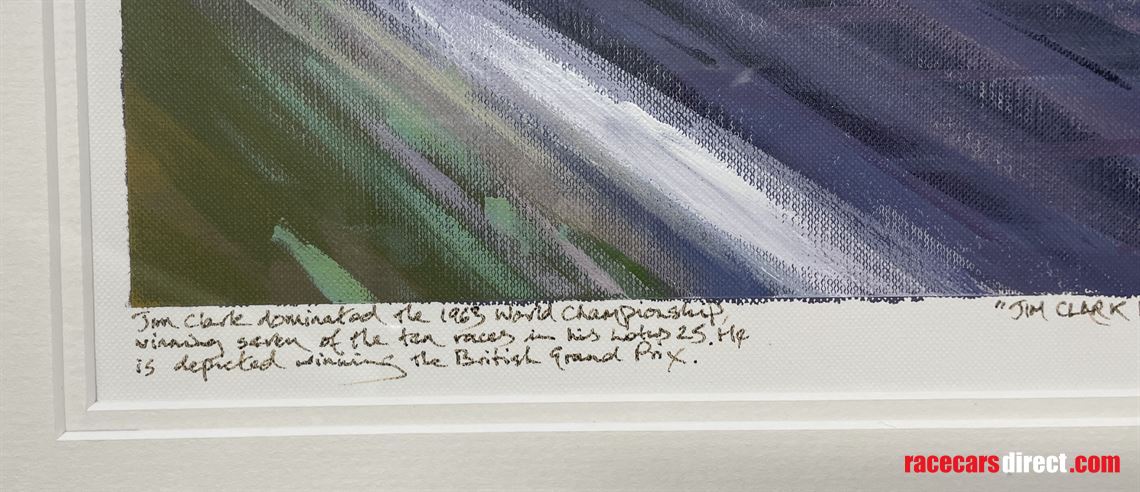 Jim Clark dominated the 1963 World Championship,
winning seven of the ten races in his Lotus 25. He
is depicted winning the British Grand Prix.
"JIM CLARK
racecarsdirect.com